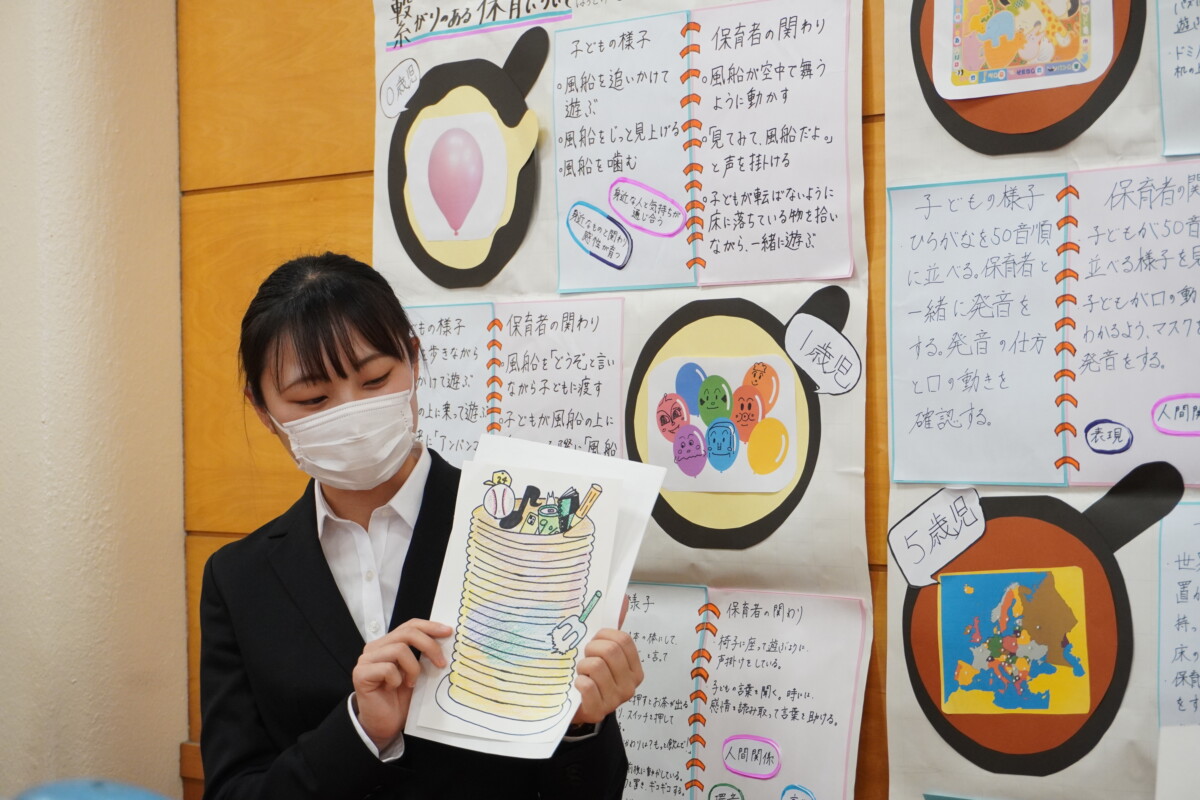 繋がりのある保育について
0歳児
子どもの様子
風船を追いかけて
遊ぶ
風船をじっと見上げる
風船を噛む
身近な人と気持ちが
通じ合う
身近なものと関わり
感性が育つ
保育者の関わり
風船が空中で舞う
ように動かす
「見てみて、風船だよ。」
と声を掛ける
子どもが転ばないように
床に落ちている物を拾い
ながら、一緒に遊ぶ
どもの様子
歩きながら
かけて遊ぶ
の上に乗って遊ぶ
に「アンパン
保育者の関わり
風船を「どうぞ」と言い
ながら子どもに渡す
子どもが風船の上に
際に「風船
1歳児
様子
保育者の関わり
椅子に座って遊ぶように、
声掛けをしている。
子どもの言葉を聞く。時には、
感情を読み取って言葉で助ける。
押すとお茶が出る
スイッチを押して
人間関係
子どもの様子
ひらがなを50音順
に並べる。保育者と
一緒に発音を
する。発音の仕方
と口の動きを
確認する。
保育者の関
子どもが50音
並べる様子を見
子どもが口の動
わかるよう、マスク
発音をする。
人間関
表現
5歳児